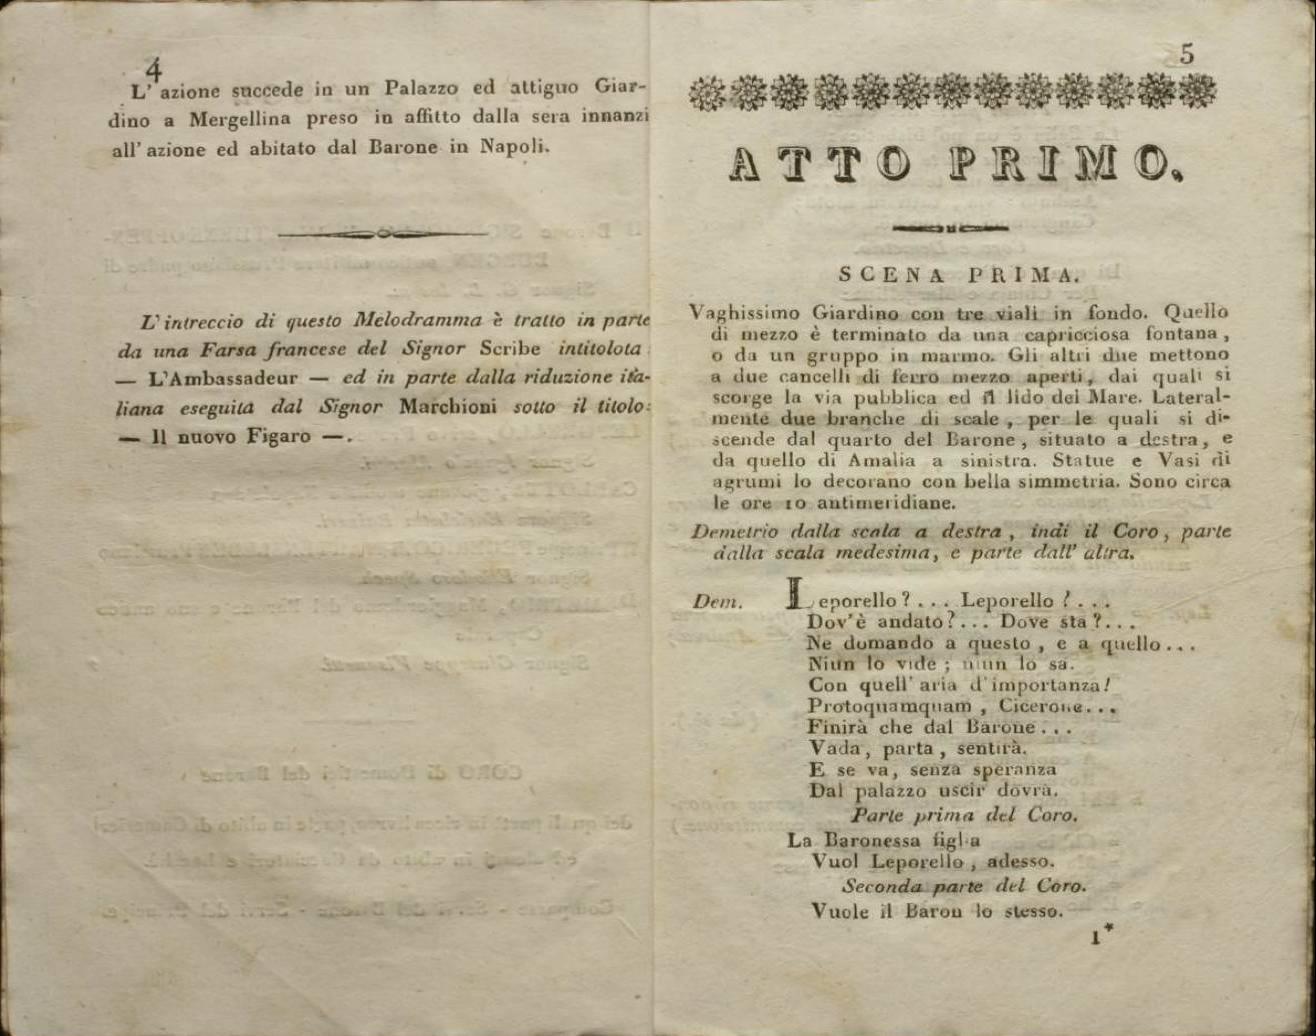 4
L' azione succede in un Palazzo ed attiguo Giar-
dino a Mergellina preso in affitto dalla sera innanzi
all' azione ed abitato dal Barone in Napoli.
L' intreccio di questo Melodramma è tratto in parte
da una Farsa francese del Signor Scribe intitolota
— L'Ambassadeur — ed in parte dalla riduzione ita-
liana eseguita dal Signor Marchioni sotto il titolo:
— Il nuovo Figaro —.
5
ATTO PRIMO.
SCENA PRIMA.
Vaghissimo Giardino con tre viali in fondo. Quello
di mezzo è terminato da una capricciosa fontana,
o da un gruppo in marmo. Gli altri due mettono
a due cancelli di ferro mezzo aperti, dai quali si
scorge la via pubblica ed il lido del Mare. Lateral-
mente due branche di scale, per le quali si di-
scende dal quarto del Barone, situato a destra, e
da quello di Amalia a sinistra. Statue e Vasi di
agrumi lo decorano con bella simmetria. Sono circa
le ore 10 antimeridiane.
Demetrio dalla scala a destra, indi il Coro, parte
dalla scala medesima, e parte dall' altra.
Dem. Leporello?... Leporello?...
Dov'è andato?... Dove sta?...
Ne domando a questo, e a quello...
Niun lo vide; niun lo sa.
Con quell' aria d'importanza!
Protoquamquam, Cicerone...
Finirà che dal Barone...
Vada, parta, sentirà.
E se va, senza speranza
Dal palazzo uscir dovrà.
Parte prima del Coro.
La Baronessa figlia
Vuol Leporello, adesso.
Seconda parte del Coro.
Vuole il Baron lo stesso.
1*